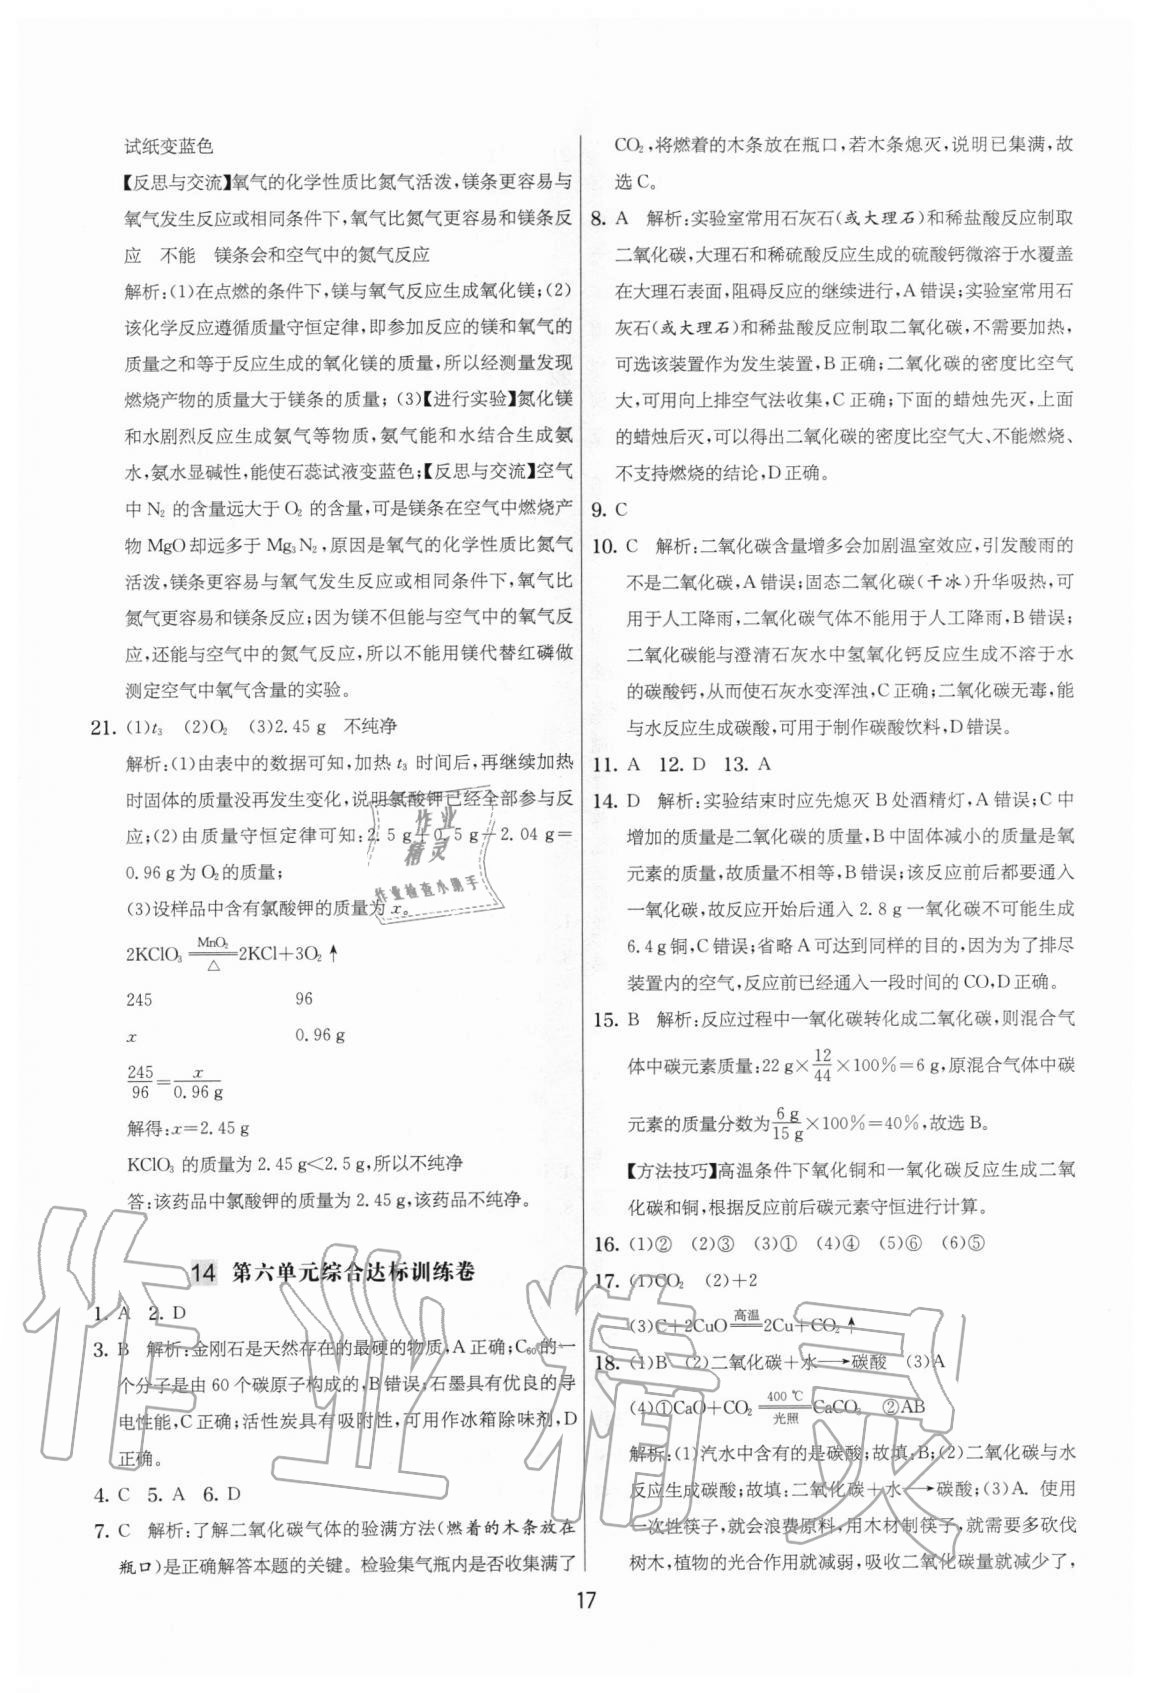 试纸变蓝色
【反思与交流】氧气的化学性质比氮气活泼,镁条更容易与
氧气发生反应或相同条件下,氧气比氮气更容易和镁条反
应　不能　镁条会和空气中的氮气反应
解析:(1)在点燃的条件下,镁与氧气反应生成氧化镁;(2)
该化学反应遵循质量守恒定律,即参加反应的镁和氧气的
质量之和等于反应生成的氧化镁的质量,所以经测量发现
燃烧产物的质量大于镁条的质量;(3)【进行实验】氮化镁
和水剧烈反应生成氨气等物质,氨气能和水结合生成氨
水,氨水显碱性,能使石蕊试液变蓝色;【反思与交流】空气
中 N₂ 的含量远大于 O₂ 的含量,可是镁条在空气中燃烧产
物 MgO 却远多于 Mg₃N₂,原因是氧气的化学性质比氮气
活泼,镁条更容易与氧气发生反应或相同条件下,氧气比
氮气更容易和镁条反应;因为镁不但能与空气中的氧气反
应,还能与空气中的氮气反应,所以不能用镁代替红磷做
测定空气中氧气含量的实验。
21. (1)t₃　(2)O₂　(3)2.45 g　不纯净
解析:(1)由表中的数据可知,加热 t₃ 时间后,再继续加热
时固体的质量没再发生变化,说明氯酸钾已经全部参与反
应;(2)由质量守恒定律可知:2.5 g+0.5 g−2.04 g=
0.96 g为 O₂的质量;
(3)设样品中含有氯酸钾的质量为 x。
2KClO₃ MnO₂ ═══ △ 2KCl+3O₂↑
245　96
x　0.96 g
245/96=x/0.96 g
解得:x=2.45 g
KClO₃ 的质量为 2.45 g<2.5 g,所以不纯净
答:该药品中氯酸钾的质量为 2.45 g,该药品不纯净。
14 第六单元综合达标训练卷
1. A　2. D
3. B　解析:金刚石是天然存在的最硬的物质,A 正确;C₆₀的一
个分子是由 60 个碳原子构成的,B错误;石墨具有优良的导
电性能,C 正确;活性炭具有吸附性,可用作冰箱除味剂,D
正确。
4. C　5. A　6. D
7. C　解析:了解二氧化碳气体的验满方法(燃着的木条放在
瓶口)是正确解答本题的关键。检验集气瓶内是否收集满了
CO₂,将燃着的木条放在瓶口,若木条熄灭,说明已集满,故
选 C。
8. A　解析:实验室常用石灰石(或大理石)和稀盐酸反应制取
二氧化碳,大理石和稀硫酸反应生成的硫酸钙微溶于水覆盖
在大理石表面,阻碍反应的继续进行,A 错误;实验室常用石
灰石(或大理石)和稀盐酸反应制取二氧化碳,不需要加热,
可选该装置作为发生装置,B 正确;二氧化碳的密度比空气
大,可用向上排空气法收集,C 正确;下面的蜡烛先灭,上面
的蜡烛后灭,可以得出二氧化碳的密度比空气大、不能燃烧、
不支持燃烧的结论,D 正确。
9. C
10. C　解析:二氧化碳含量增多会加剧温室效应,引发酸雨的
不是二氧化碳,A 错误;固态二氧化碳(干冰)升华吸热,可
用于人工降雨,二氧化碳气体不能用于人工降雨,B 错误;
二氧化碳能与澄清石灰水中氢氧化钙反应生成不溶于水
的碳酸钙,从而使石灰水变浑浊,C 正确;二氧化碳无毒,能
与水反应生成碳酸,可用于制作碳酸饮料,D 错误。
11. A　12. D　13. A
14. D　解析:实验结束时应先熄灭 B 处酒精灯,A 错误;C 中
增加的质量是二氧化碳的质量,B 中固体减小的质量是氧
元素的质量,故质量不相等,B 错误;该反应前后都要通入
一氧化碳,故反应开始后通入 2.8 g 一氧化碳不可能生成
6.4 g 铜,C 错误;省略 A 可达到同样的目的,因为为了排尽
装置内的空气,反应前已经通入一段时间的 CO,D 正确。
15. B　解析:反应过程中一氧化碳转化成二氧化碳,则混合气
体中碳元素质量:22 g×12/44×100%=6 g,原混合气体中碳
元素的质量分数为6 g/15 g×100%=40%,故选 B。
【方法技巧】高温条件下氧化铜和一氧化碳反应生成二氧
化碳和铜,根据反应前后碳元素守恒进行计算。
16. (1)②　(2)③　(3)①　(4)④　(5)⑥　(6)⑤
17. (1)CO₂　(2)+2
(3)C+2CuO 高温═══ 2Cu+CO₂↑
18. (1)B　(2)二氧化碳+水→碳酸　(3)A
(4)①CaO+CO₂ 400 ℃═══光照 CaCO₃　②AB
解析:(1)汽水中含有的是碳酸;故填:B;(2)二氧化碳与水
反应生成碳酸;故填:二氧化碳+水→碳酸;(3)A. 使用
一次性筷子,就会浪费原料,用木材制筷子,就需要多砍伐
树木,植物的光合作用就减弱,吸收二氧化碳量就减少了,
17
作业精灵
作业
精灵
作业检查小助手